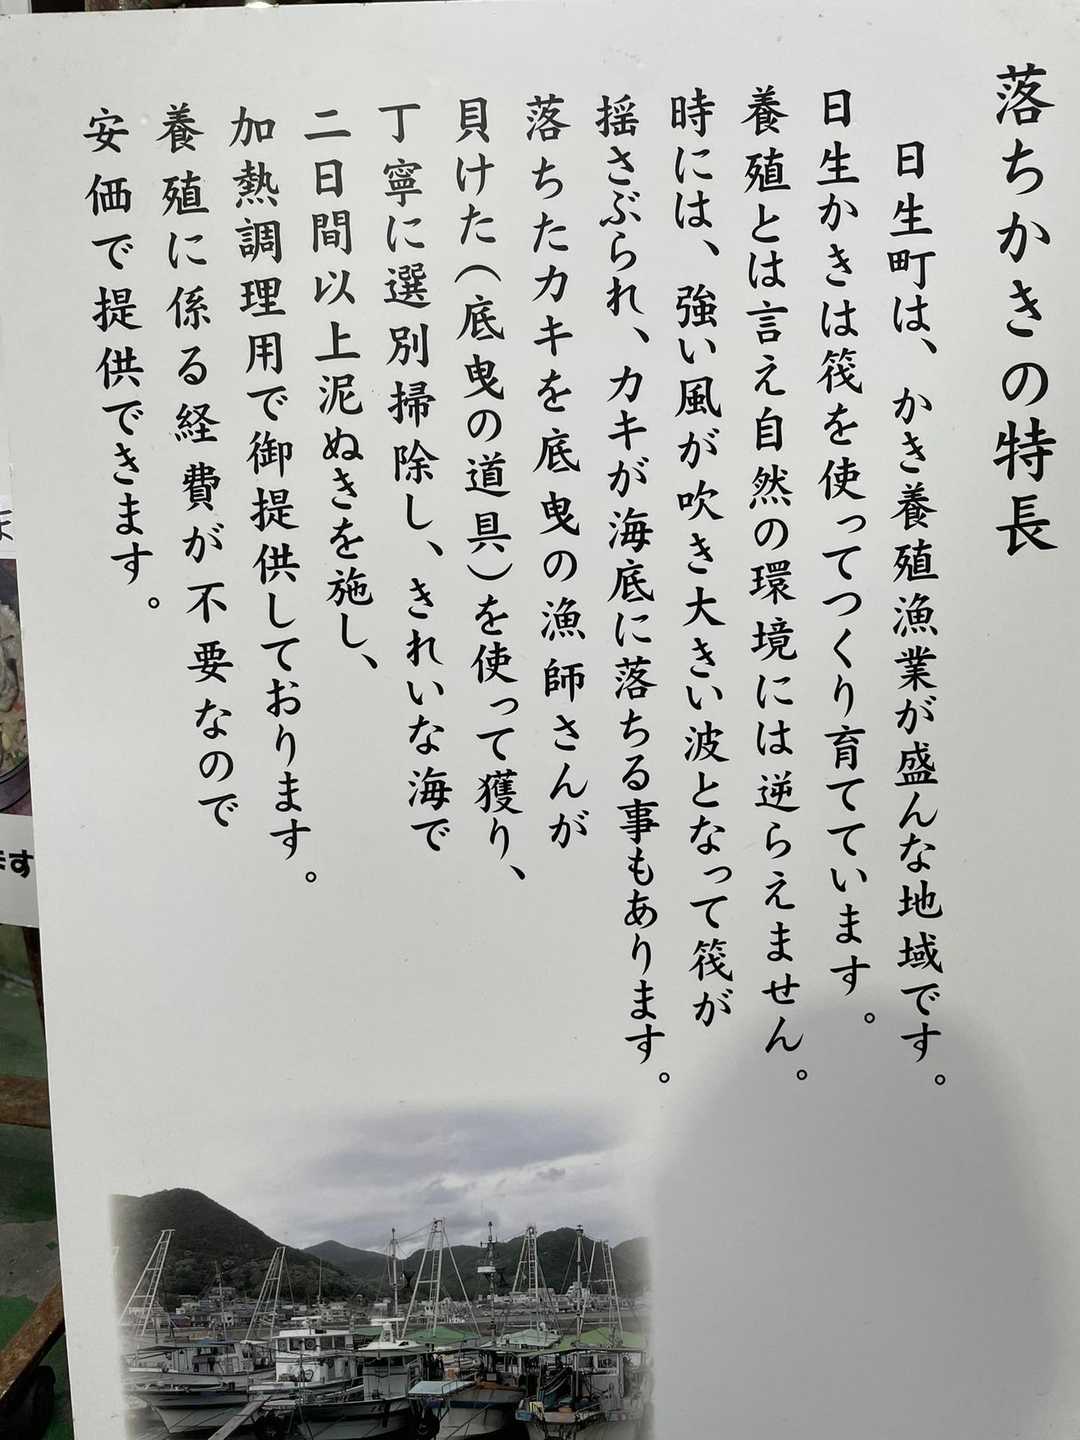 落ちかきの特長
日生町は、かき養殖漁業が盛んな地域です。
日生かきは筏を使ってつくり育てています。
養殖とは言え自然の環境には逆らえません。
時には、強い風が吹き大きい波となって筏が
揺さぶられ、カキが海底に落ちる事もあります。
落ちたカキを底曳の漁師さんが
貝けた(底曳の道具)を使って獲り、
丁寧に選別掃除し、きれいな海で
二日間以上泥ぬきを施し、
加熱調理用で御提供しております。
養殖に係る経費が不要なので
安価で提供できます。
ます